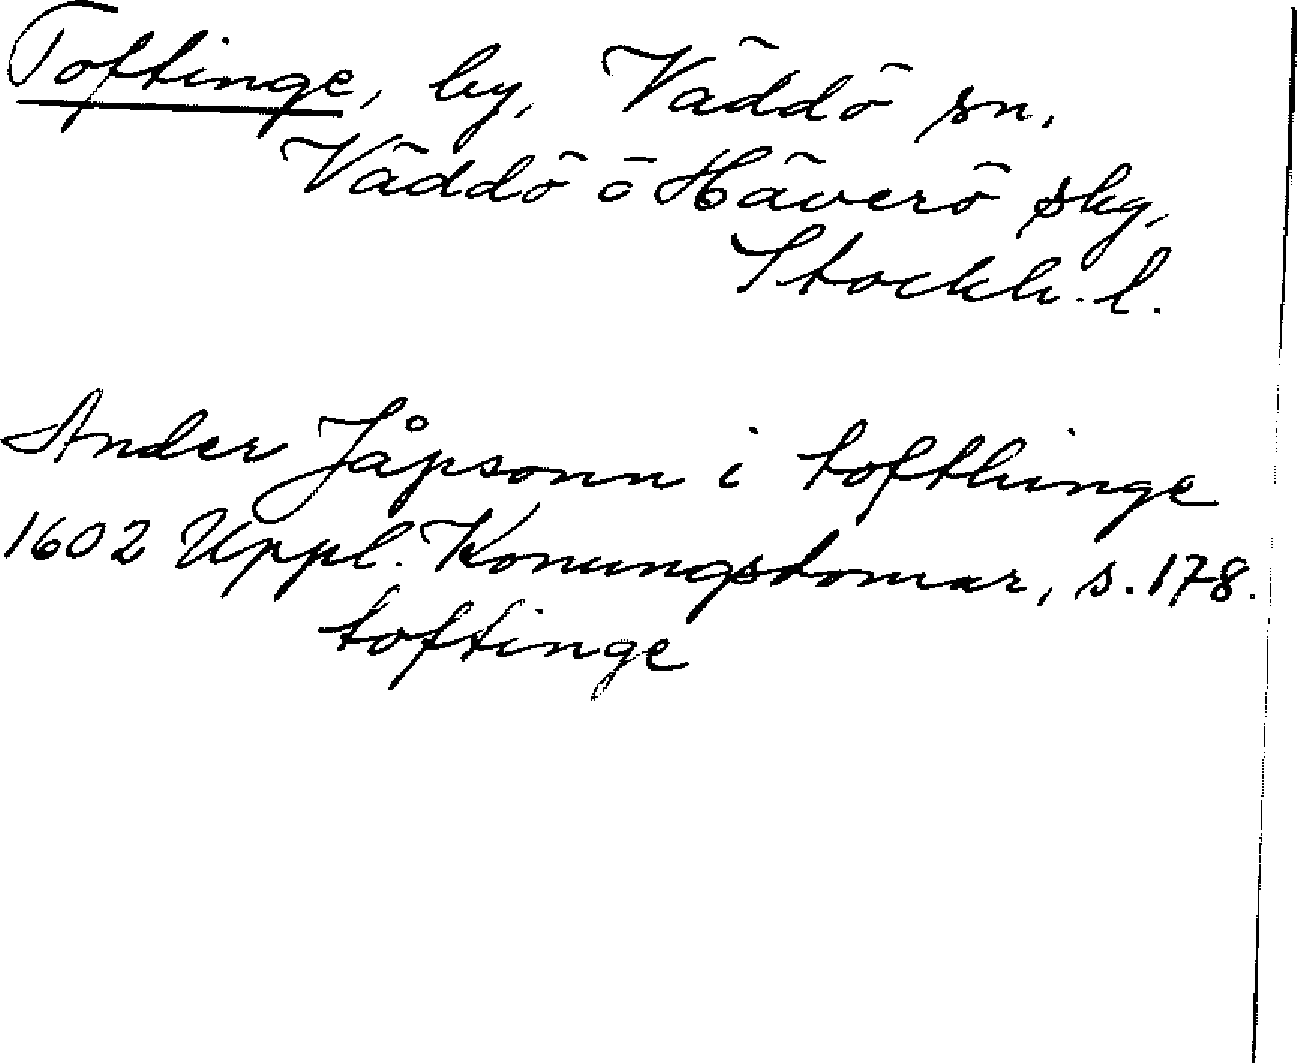 Toftinge, by, Väddö sn.
Väddö o Häverö skg,
Stockh. l.
Ander Jåpsonn i tofthinge
1602 Uppl. Konungsdomar, s. 178.
toftinge